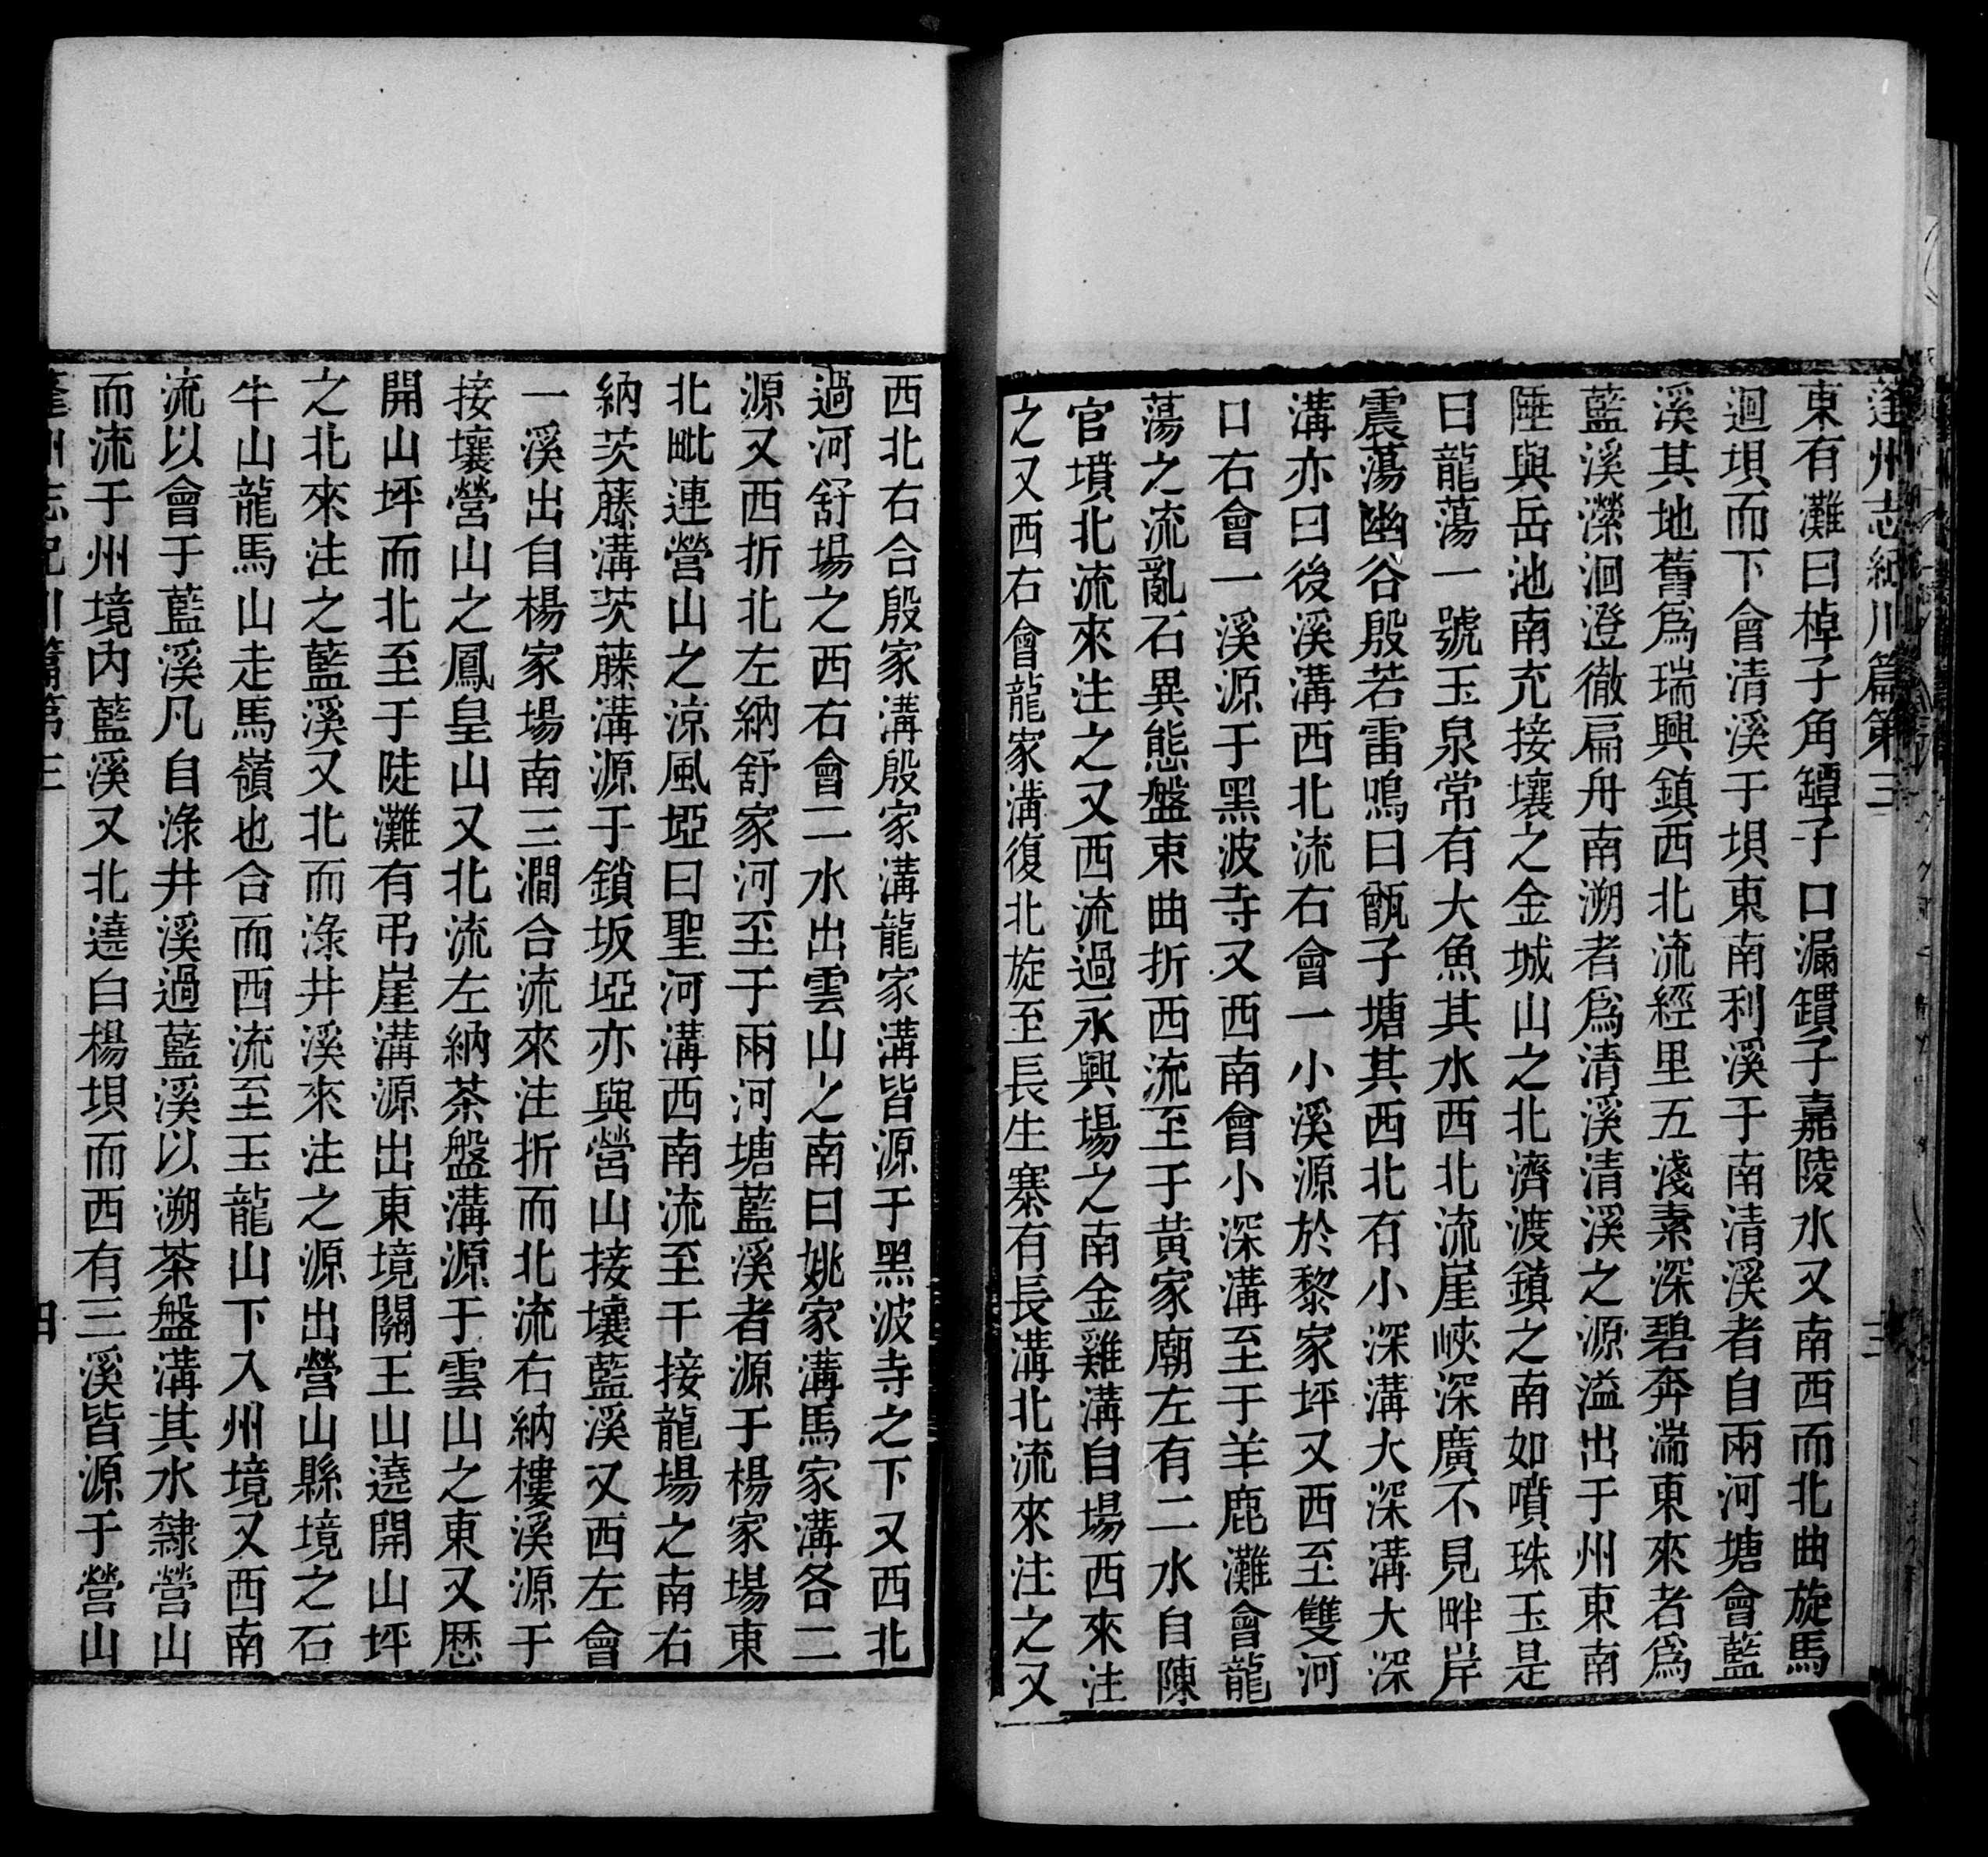 蓬州志紀川篇第三 三
東有灘曰棹子角罈子口漏鑽子嘉陵水又南西而北曲旋馬
迴垻而下會清溪于垻東南利溪于南清溪者自兩河塘會藍
溪其地舊爲瑞興鎮西北流經里五淺素深碧奔湍東來者爲
藍溪瀠洄澄徹扁舟南溯者爲清溪清溪之源溢出于州東南
陲與岳池南充接壤之金城山之北濟渡鎮之南如噴珠玉是
曰龍蕩一號玉泉常有大魚其水西北流崖峽深廣不見畔岸
震蕩幽谷殷若雷鳴曰甑子塘其西北有小深溝大深溝大深
溝亦曰後溪溝西北流右會一小溪源於黎家坪又西至雙河
口右會一溪源于黑波寺又西南會小深溝至于羊鹿灘會龍
蕩之流亂石異態盤束曲折西流至于黃家廟左有二水自陳
官墳北流來注之又西流過永興場之南金雞溝自場西來注
之又西右會龍家溝復北旋至長生寨有長溝北流來注之又
西北右合殷家溝殷家溝龍家溝皆源于黑波寺之下又西北
過河舒場之西右會二水出雲山之南曰姚家溝馬家溝各二
源又西折北左納舒家河至于兩河塘藍溪者源于楊家場東
北毗連營山之涼風埡曰聖河溝西南流至干接龍場之南右
納茨藤溝茨藤溝源于鎖坂埡亦與營山接壤藍溪又西左會
一溪出自楊家場南三澗合流來注折而北流右納樓溪源于
接壤營山之鳳皇山又北流左納茶盤溝源于雲山之東又歷
開山坪而北至于陡灘有弔崖溝源出東境關王山遶開山坪
之北來注之藍溪又北而淥井溪來注之源出營山縣境之石
牛山龍馬山走馬嶺也合而西流至玉龍山下入州境又西南
流以會于藍溪凡自淥井溪過藍溪以溯茶盤溝其水隸營山
而流于州境內藍溪又北遶白楊垻而西有三溪皆源于營山
蓬州志紀川篇第三 四